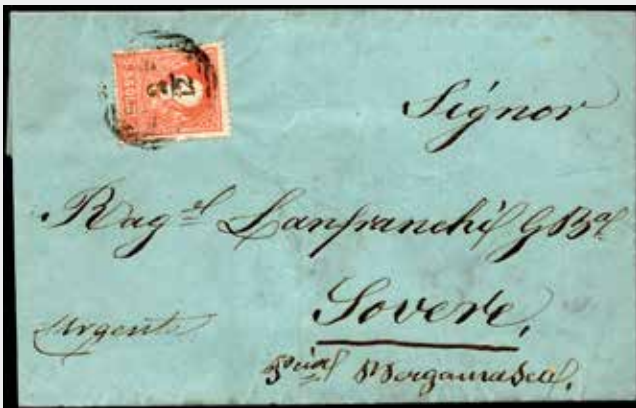 Signor
Rag.ˢ Lanfranchi GBᵃ
Sovere,
Urgente
Bergamasca.